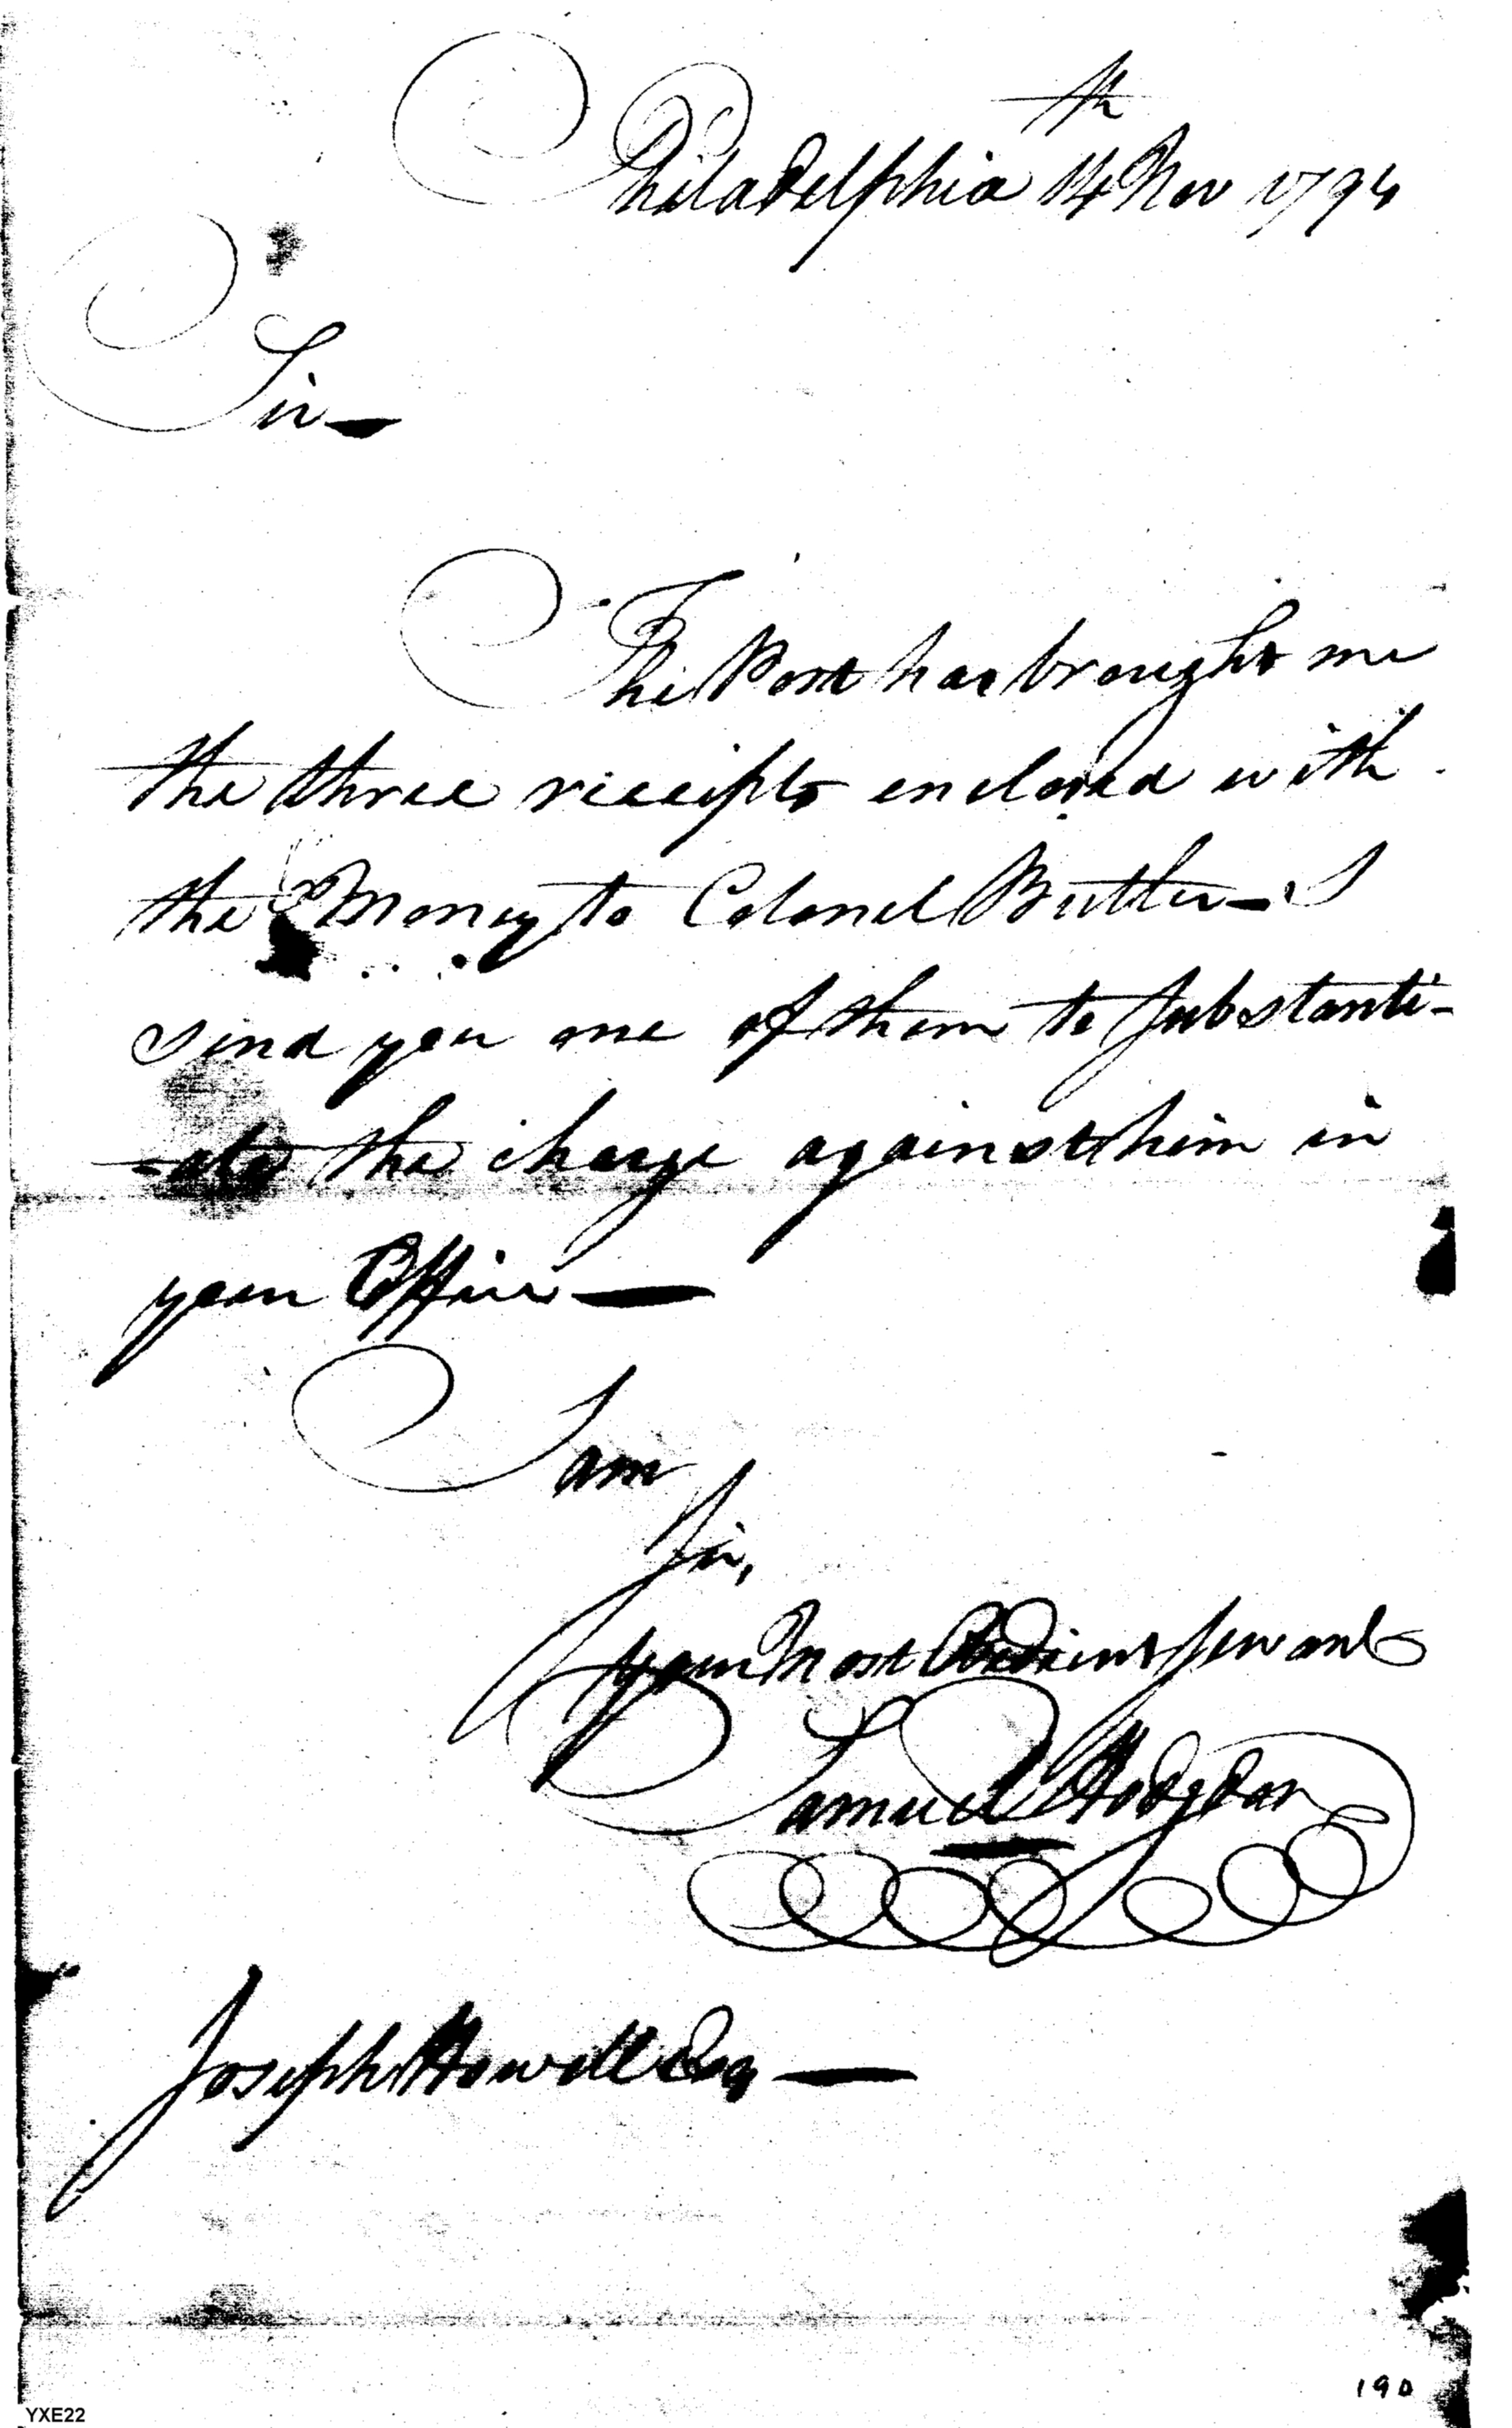 Philadelphia 14th Nov 1794
Sir—
The Post has brought me
the three receipts enclosed with
the Money to Colonel Butler— I
send you one of them to Substanti-
-ate the charge against him in
your Office—
I am
Sir,
your Most Obedient Servant
Samuel Hodgdon
Joseph Howell Esq—
190
YXE22